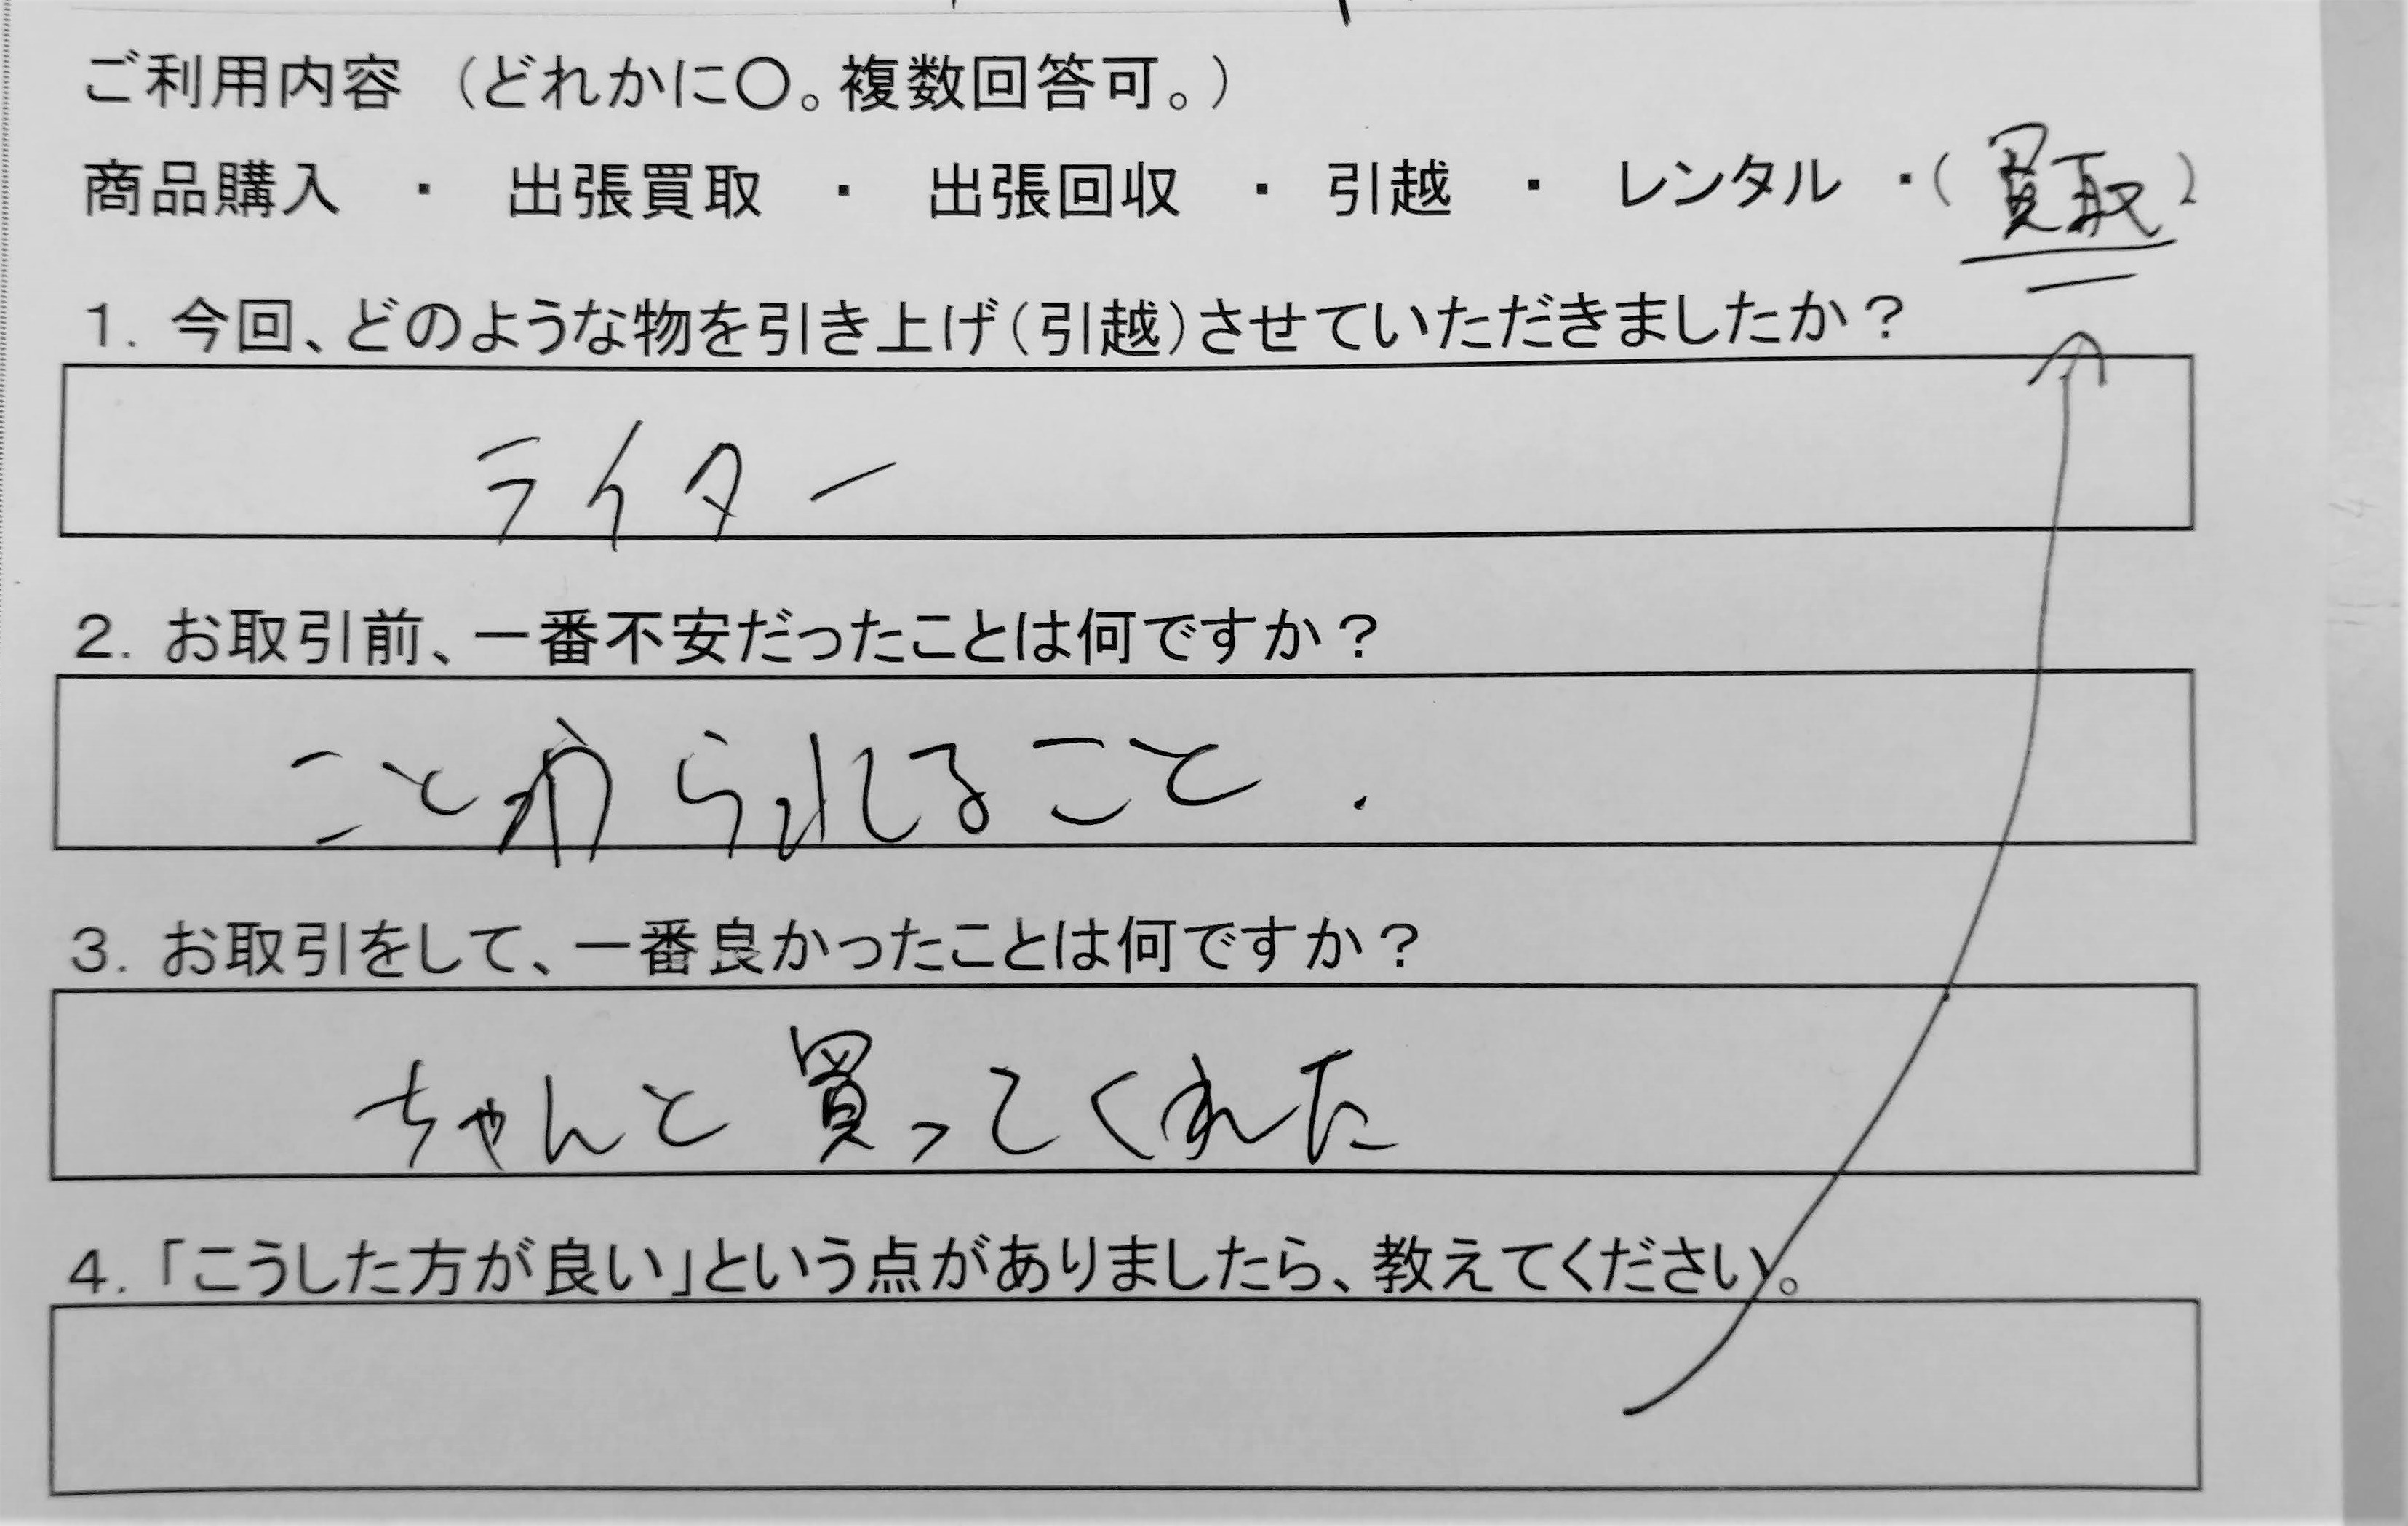 ご利用内容　（どれかに〇。複数回答可。）
商品購入　・　出張買取　・　出張回収　・　引越　・　レンタル　・（買取）
1. 今回、どのような物を引き上げ（引越）させていただきましたか？
ライター
2. お取引前、一番不安だったことは何ですか？
ことわられること.
3. お取引をして、一番良かったことは何ですか？
ちゃんと買ってくれた
4. 「こうした方が良い」という点がありましたら、教えてください。